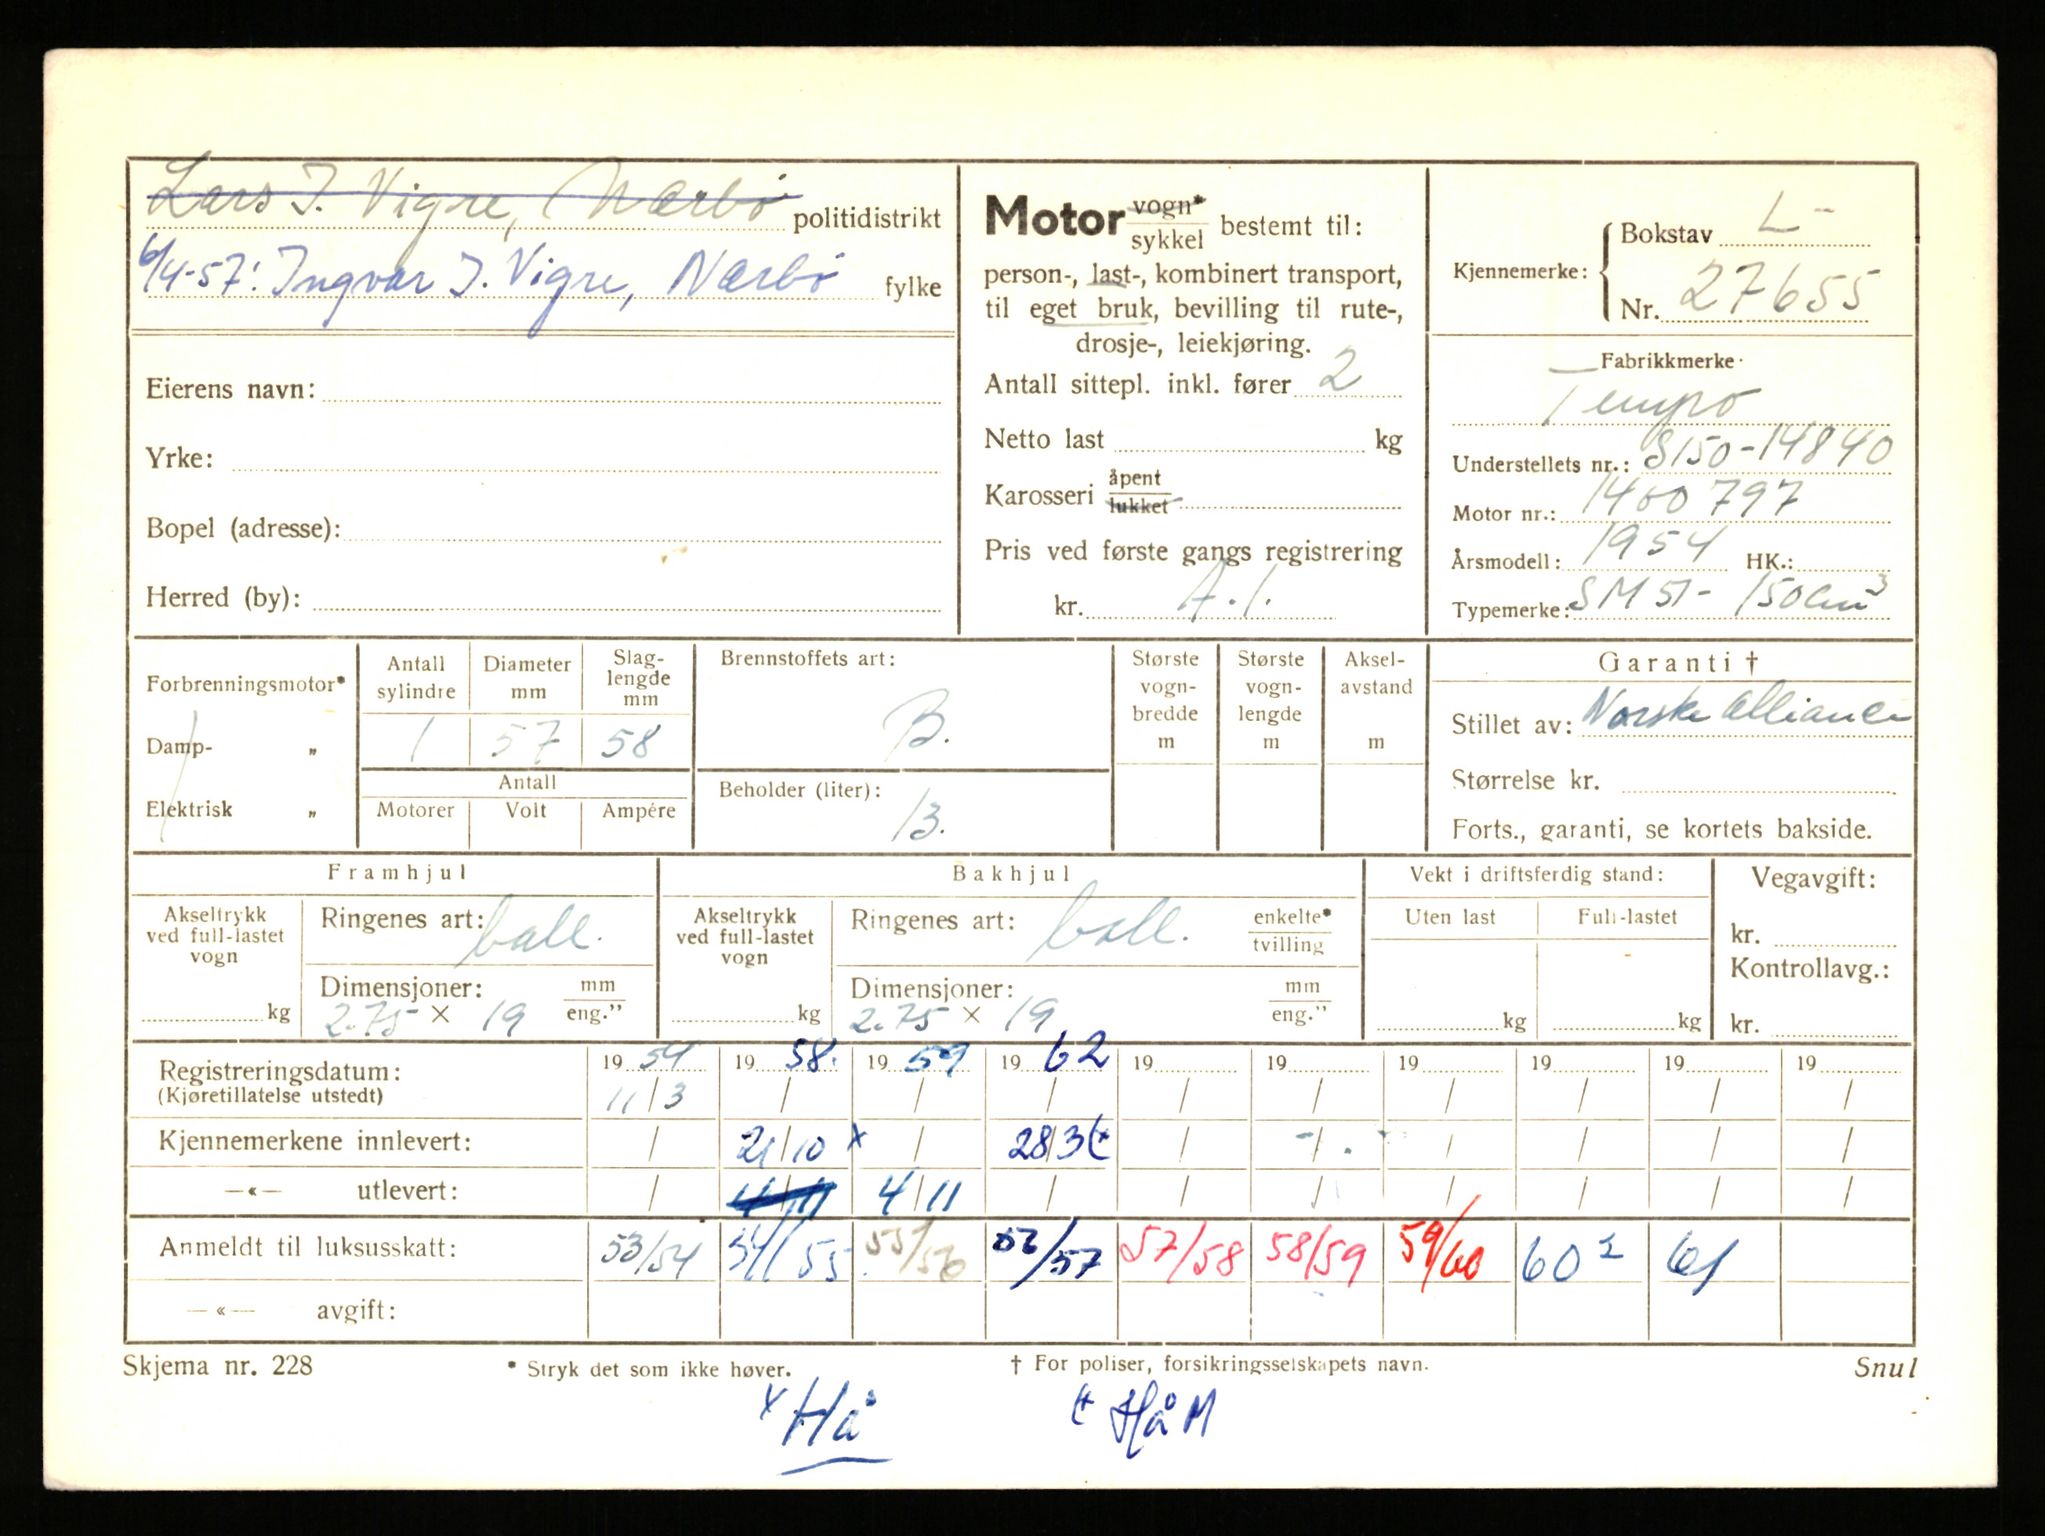 Lars J. Vigre, Nærbø politidistrikt
6/4-57: Ingvar J. Vigre, Nærbø fylke
Eierens navn:
Yrke:
Bopel (adresse):
Herred (by):
Motor vogn* / sykkel bestemt til:
person-, last-, kombinert transport,
til eget bruk, bevilling til rute-,
drosje-, leiekjøring.
Antall sittepl. inkl. fører 2
Netto last kg
Karosseri åpent / lukket
Pris ved første gangs registrering
kr. A.1.
Kjennemerke:
Bokstav L-
Nr. 27655
Fabrikkmerke
Tempo
Understellets nr.: S150-14840
Motor nr.: 1400797
Årsmodell: 1954 HK.:
Typemerke: SM 51- 150cm³
Forbrenningsmotor*
Damp- „
Elektrisk „
Antall sylindre
Diameter mm
Slag-lengde mm
1 57 58
Antall
Motorer Volt Ampére
Brennstoffets art:
B.
Beholder (liter):
13.
Største vogn-bredde m
Største vogn-lengde m
Aksel-avstand m
Garanti †
Stillet av: Norske Alliance
Størrelse kr.
Forts., garanti, se kortets bakside.
Framhjul
Akseltrykk ved full-lastet vogn
kg
Ringenes art: ball.
Dimensjoner: mm / eng."
2.75 × 19
Bakhjul
Akseltrykk ved full-lastet vogn
kg
Ringenes art: ball. enkelte* / tvilling
Dimensjoner: mm / eng."
2.75 × 19
Vekt i driftsferdig stand:
Uten last Full-lastet
kg kg
Vegavgift:
kr.
Kontrollavg.:
kr.
Registreringsdatum: 19 54 19 58. 19 59 19 62 19 19 19 19 19 19
(Kjøretillatelse utstedt) 11/3 / / / / / / / / /
Kjennemerkene innlevert: / 21/10 x / 28/3 / / / / / /
—«— utlevert: / 4/11 4/11 / / / / / / /
Anmeldt til luksusskatt: 53/54 54/55 55/56 56/57 57/58 58/59 59/60 60 61
—«— avgift:
Skjema nr. 228 * Stryk det som ikke høver. † For poliser, forsikringsselskapets navn. Snul
x Hå Hå M